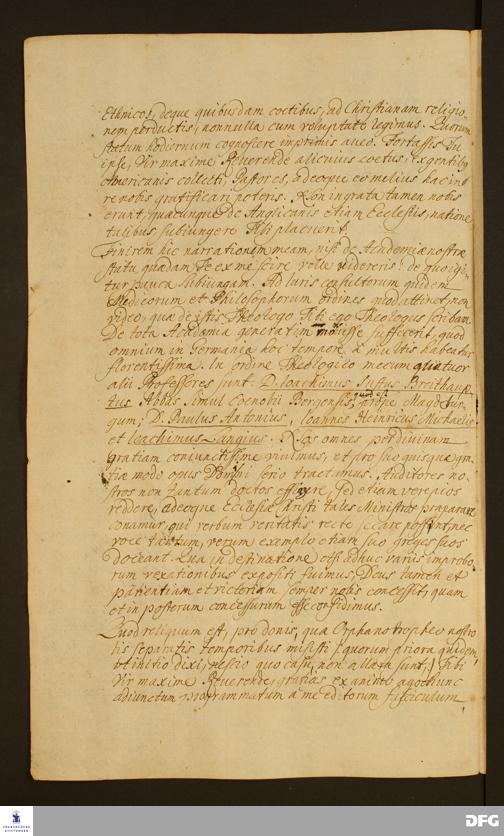 Ethnicos, deque quibusdam coetibus, ad Christianam religio-
nem perductis, nonnulla cum voluptate legimus. Quorum
statum hodiernum cognoscere imprimis aveo. Fortassis Tu
ipse, Vir maxime Reverende alicuius coetus ex gentilib9
Americanis collecti, Pastores, adeoque eo melius hac in
re nobis gratificari poteris. Non ingrata tamen nobis
erunt, quaecunque de Anglicanis etiam Ecclesiis, natione
talibus subiungere Tibi placuerit.
Finirem hic narrationem meam, nisi de Academiae nostrae
statu, quaedam Te ex me scire velle videreris: de quo igi-
tur pauca subiungam. Ad Iuris consultorum quidem
Medicorum et Philosophorum ordines quod attinet, non
video, quae de istis Theologo Tibi ego Theologus scribam.
De tota Academia generatim monuisse suffecerit, quod
omnium in Germania hoc tempore a multis habeatur
florentissima. In ordine Theologico mecum quatuor
alii Professores sunt: D. Ioachimus Iustus Breithaup-
tus Abbas simul Coenobii Bergensis, quod est prope Magdebur-
gum, D. Paulus Antonius, Ioannes Heinricus Michaelis
et Ioachimus Langius. Nos omnes per divinam
gratiam coniunctissime vivimus, et pro suo quisque gra-
tiae modo opus Domini serio tractamus. Auditores no-
stros non tantum doctos efficere, sed etiam vere pios
reddere, adeoque Ecclesiae Christi tales Ministros praeparare
conamur, qui verbum veritatis recte secare possint, nec
voce tantum, verum exemplo etiam suo greges suos
doceant. Qua in destinatione etsi adhuc variis improbo-
rum vexationibus expositi fuimus, Deus tamen et
patientiam et victoriam semper nobis concessit, quam
et in posterum concessurum esse confidimus.
Quod reliquum est, pro donis, quae Orphanotropheo nostro
his septuaginta temporibus misisti (quorum priora quidem,
ut initio dixi, nescio quo casu, non allata sunt;) Tibi
Vir maxime Reverende, gratias ex animo ago, hunc
adiunctum programmatum a me editorum fasciculum
FRANCKESCHE
STIFTUNGEN
DFG